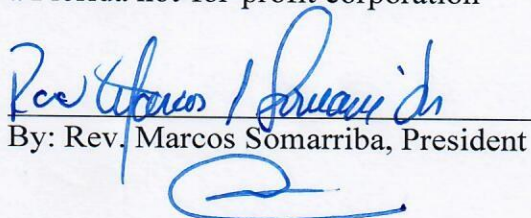 Florida not-for-profit corporation
Rev Marcos Somarriba
By: Rev. Marcos Somarriba, President